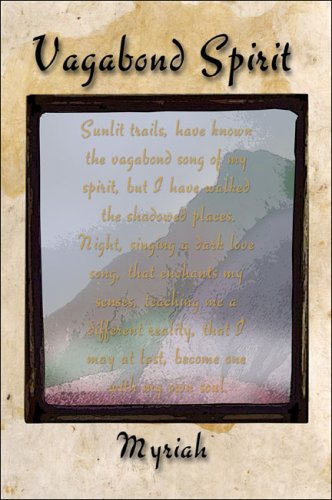 Vagabond Spirit
Sunlit trails, have known
the vagabond song of my
spirit, but I have walked
the shadowed places.
Night, singing a dark love
song, that enchants my
senses, teaching me a
different reality, that I
may at last, become one
with my own soul.
Myriah